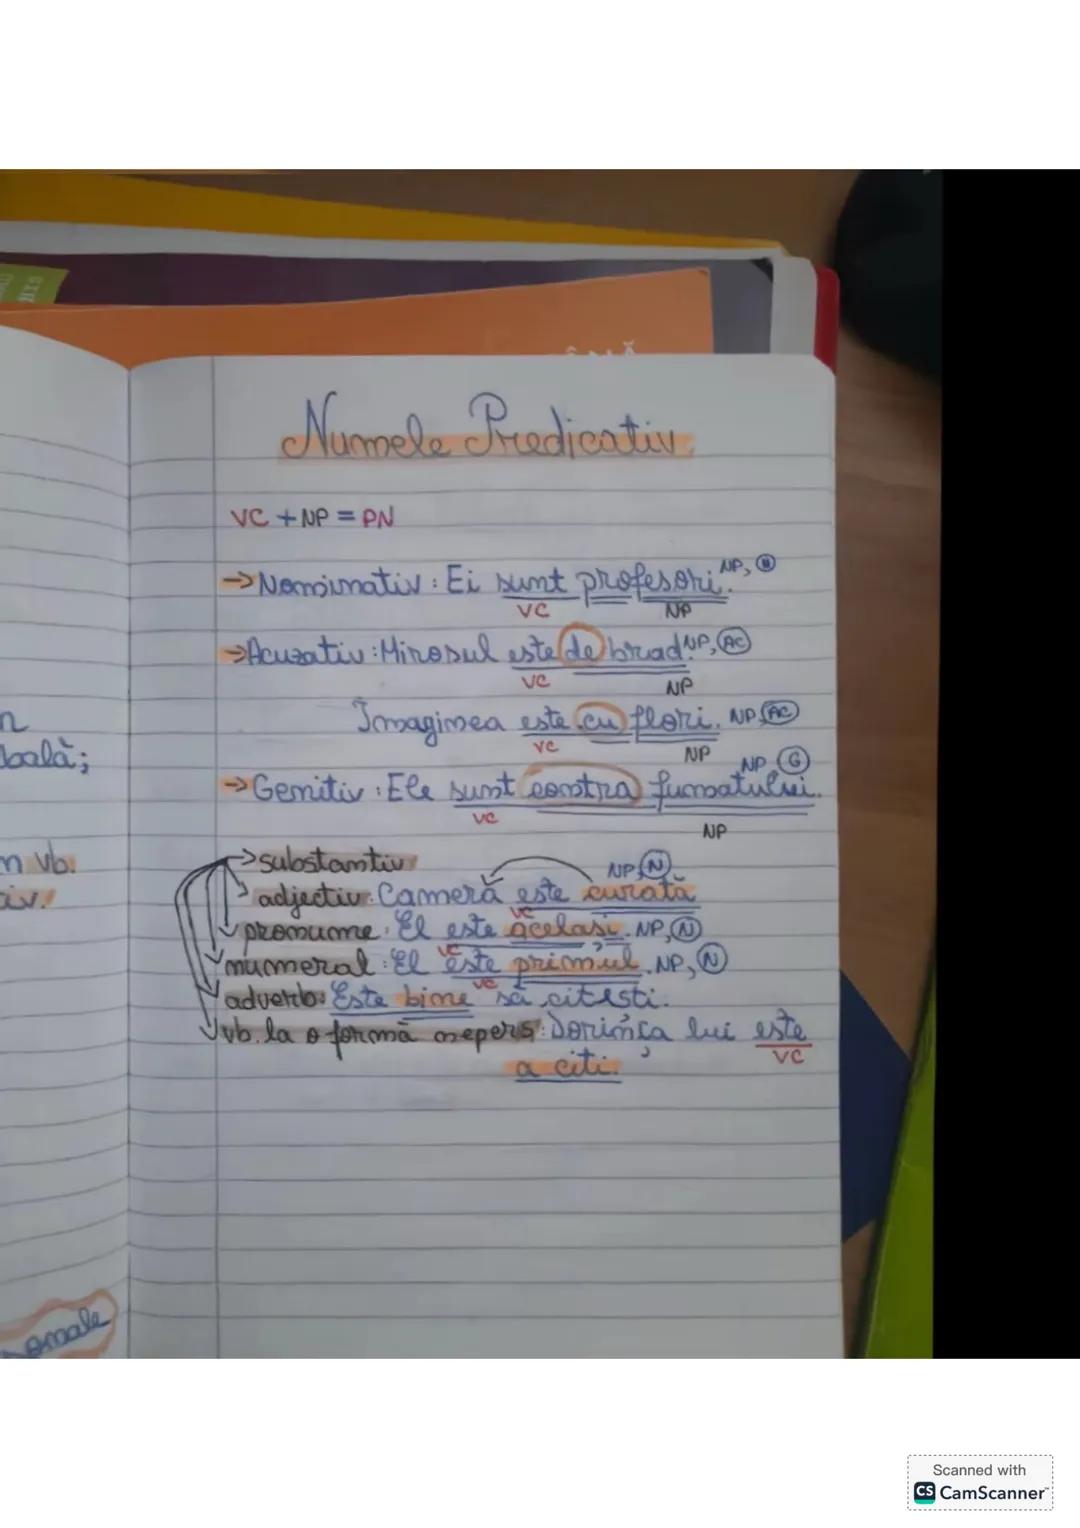 Numele Predicativ
VC + NP = PN
→ Nominativ: Ei sunt profesori. NP, N
VC NP
→ Acuzativ: Mirosul este de brad. NP, AC
VC NP
Imaginea este cu flori. NP, AC
VC NP
NP, G
→ Genitiv: Ele sunt contra fumatului.
VC NP
→ substantiv
NP, N
adjectiv: Camera este curată
VC
pronume: El este același. NP, N
VC
numeral: El este primul. NP, N
VC
adverb: Este bine să citești.
vb. la o formă nepers: Dorința lui este
VC
a citi.
n
boală;
n vb.
onale
Scanned with
CS CamScanner